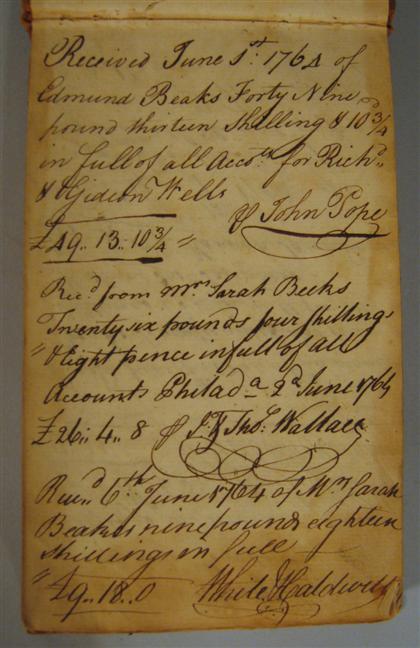 Received June 1st. 1764 of
Edmund Beaks Forty Nine
pound thirteen Shilling & 10 3/4 d
in full of all Accots. for Richd.
& Gideon Wells
₶ John Pope
£49.. 13.. 10 3/4 "
Recd. from Mrs. Sarah Beeks
Twenty six pounds four Shillings
" & Eight pence in full of all
Accounts Philada. 2d June 1764
£26.. 4.. 8 ₶ Thos. Wallace
Recd. 6th. June 1764 of Mrs Sarah
Beakes nine pounds eighteen
Shillings in full
" £9.. 18.. 0 White & Caldwell